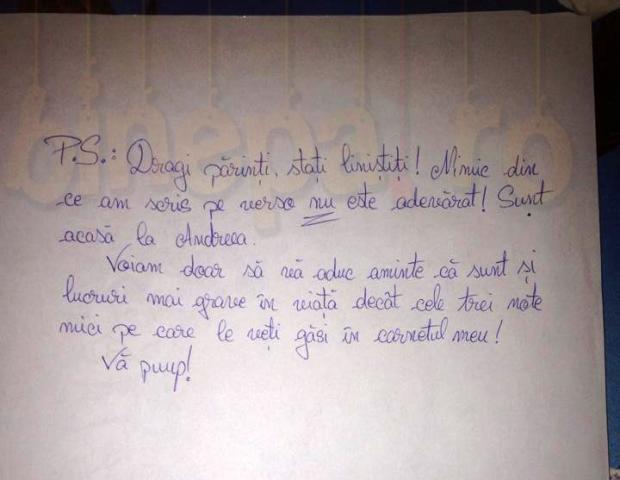 P.S.: Dragi părinți, stați liniștiți! Nimic din
ce am scris pe verso nu este adevărat! Sunt
acasă la Andreea.
Voiam doar să vă aduc aminte că sunt și
lucruri mai grave în viață decât cele trei note
mici pe care le veți găsi în carnetul meu!
Vă pup!
cinepa.ro